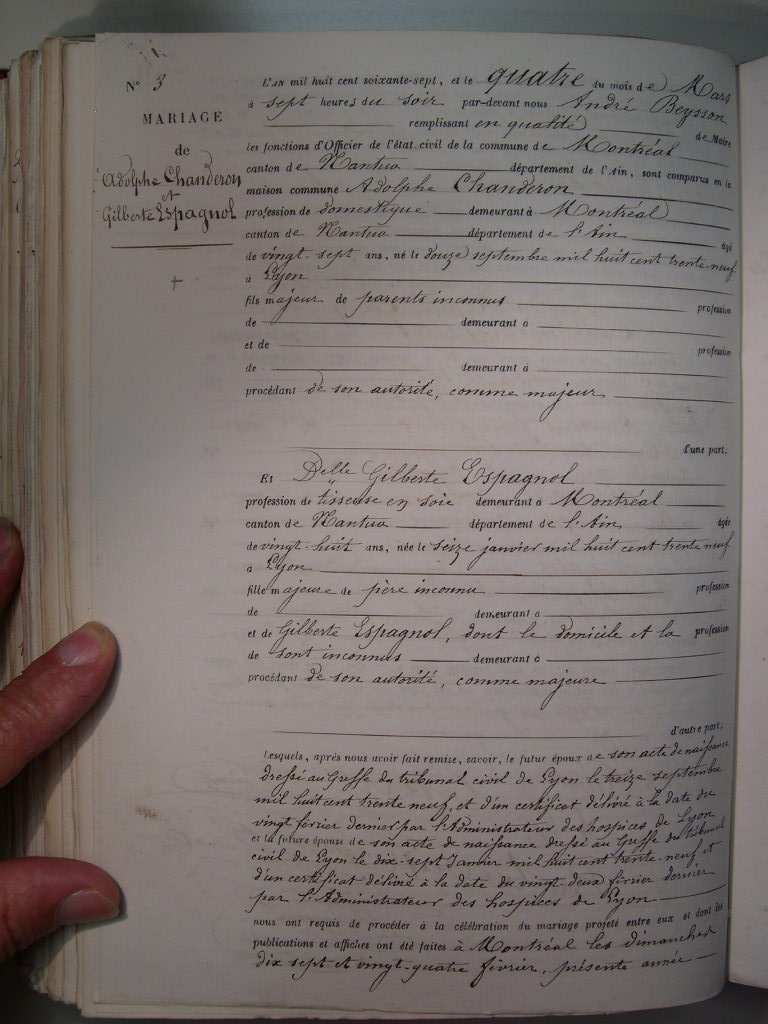 N° 3
MARIAGE
de
Adolphe Chanderon
et
Gilberte Espagnol
L'AN mil huit cent soixante-sept, et le quatre du mois de Mars
à sept heures du soir par-devant nous André Beysson
remplissant en qualité de Maire
les fonctions d'Officier de l'état civil de la commune de Montréal
canton de Nantua département de l'Ain, sont comparus en la
maison commune Adolphe Chanderon
profession de domestique demeurant à Montréal
canton de Nantua département de l'Ain âgé
de vingt-sept ans, né le douze septembre mil huit cent trente neuf
à Lyon
fils majeur de parents inconnus profession
de demeurant à
et de profession
de demeurant à
procédant de son autorité, comme majeur
d'une part.
Et Delle Gilberte Espagnol
profession de tisseuse en soie demeurant à Montréal
canton de Nantua département de l'Ain âgée
de vingt-huit ans, née le seize janvier mil huit cent trente neuf
à Lyon
fille majeure de père inconnu profession
de demeurant à
et de Gilberte Espagnol, dont le domicile et la profession
de sont inconnus demeurant à
procédant de son autorité, comme majeure
d'autre part.
Lesquels, après nous avoir fait remise, savoir, le futur époux de son acte de naissance
dressé au Greffe du tribunal civil de Lyon le treize septembre
mil huit cent trente neuf, et d'un certificat délivré à la date du
vingt février dernier par l'Administrateur des hospices de Lyon
et la future épouse de son acte de naissance dressé au Greffe du tribunal
civil de Lyon le dix-sept Janvier mil huit cent trente-neuf et
d'un certificat délivré à la date du vingt deux février dernier
par l'Administrateur des hospices de Lyon
nous ont requis de procéder à la célébration du mariage projeté entre eux et dont les
publications et affiches ont été faites à Montréal les dimanches
dix sept et vingt-quatre février, présente année